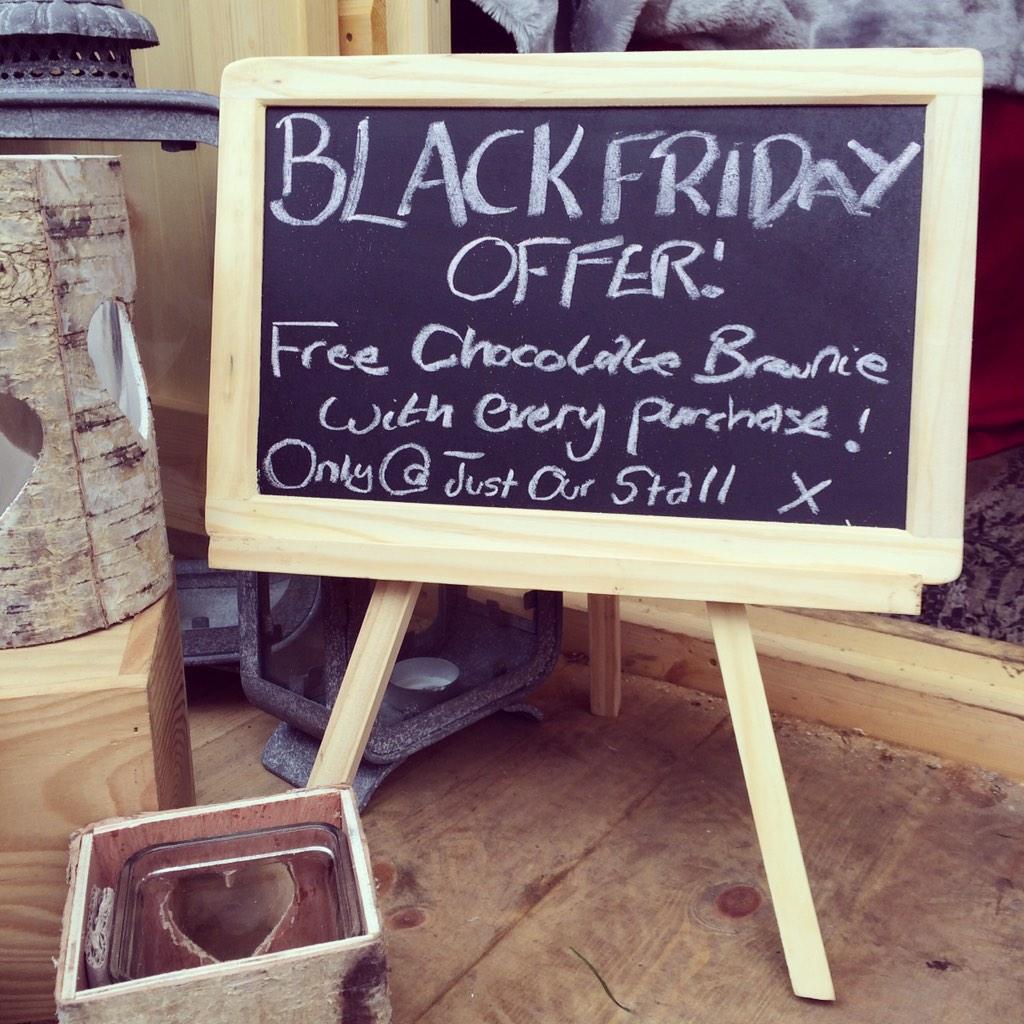 BLACK FRIDAY
OFFER!
Free Chocolate Brownie
with every purchase!
Only @ Just Our Stall x